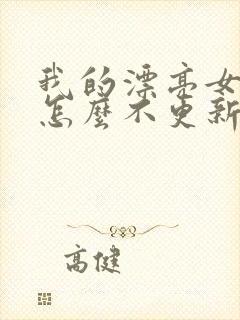 我的漂亮女
怎麼不更新
高健